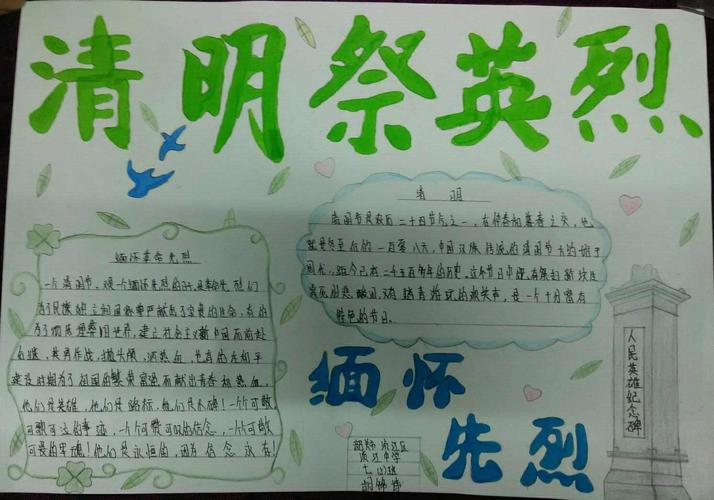 清明祭英烈
清明
清明节是我国二十四节气之一，在仲春和暮春之交，也
就是冬至后的一百零八天。中国汉族传统的清明节大约始于
周代，距今已有二千五百多年的历史，这个节日中既有祭扫新坟生
离死别悲酸泪，又有踏青游玩的欢笑声，是一个十分富有
特色的节日。
缅怀革命先烈
一个清明节，又一个缅怀先烈的时，是革命先烈们
为了民族独立和国家尊严献出了宝贵的生命，有的
为了彻底埋葬旧世界，建立社会主义新中国而前赴
后继，英勇作战，抛头颅，洒热血，也有的在和平
建设时期为了祖国的繁荣富强而献出青春和热血，
他们是英雄，他们是路标，他们是永碑！一个个可敬
可歌可泣的事迹，一个个可赞可叹的信念，一个个可敬
可爱的军魂！他们是永恒的，因为信念永在！
缅怀
先烈
人民英雄纪念碑
中学
七
班